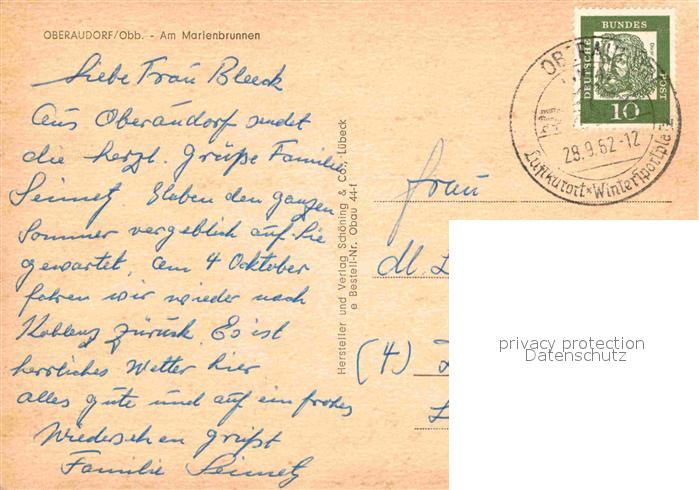 OBERAUDORF/Obb. - Am Marienbrunnen
Liebe Frau Bleeck
Aus Oberaudorf sendet
die herzl. Grüße Familie
Seimetz. Haben den ganzen
Sommer vergeblich auf Sie
gewartet, am 4 Ocktober
fahren wir wieder nach
Koblenz zurück. Es ist
herrliches Wetter hier
alles gute und auf ein frohes
Wiedersehen grüßt
Familie Seimetz
Hersteller und Verlag Schöning & Co., Lübeck
e Bestell-Nr. Obau 44-f
DEUTSCHE BUNDES POST
10
28.9.62-12
Luftkurort * Wintersportplatz
Frau
M. L
(4)
privacy protection
Datenschutz